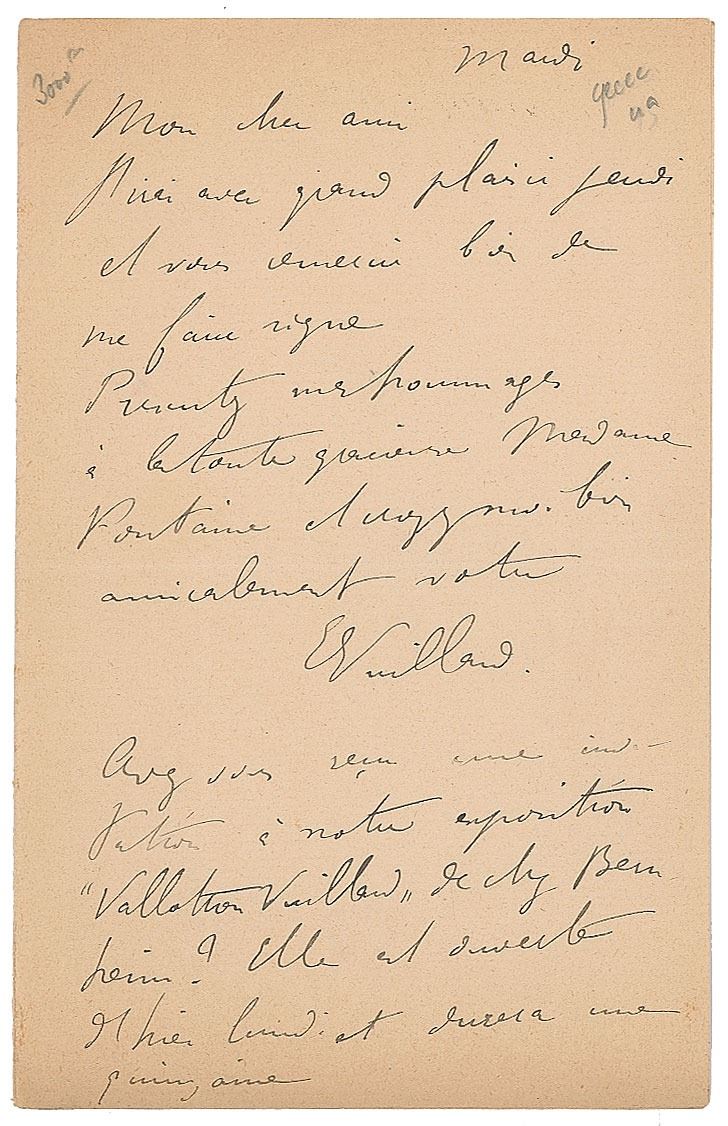 Mardi
3000
Mon cher ami
J'irai avec grand plaisir jeudi
et vous remercie bien de
me faire signe
Presentez mes hommages
à la toute gracieuse Madame
Fontaine et croyez moi bien
amicalement votre
EVuillard.
Avez vous reçu une invi-
tation à notre exposition
"Vallotton Vuillard" de chez Bern-
heim? Elle est ouverte
d'hier lundi et durera une
quinzaine